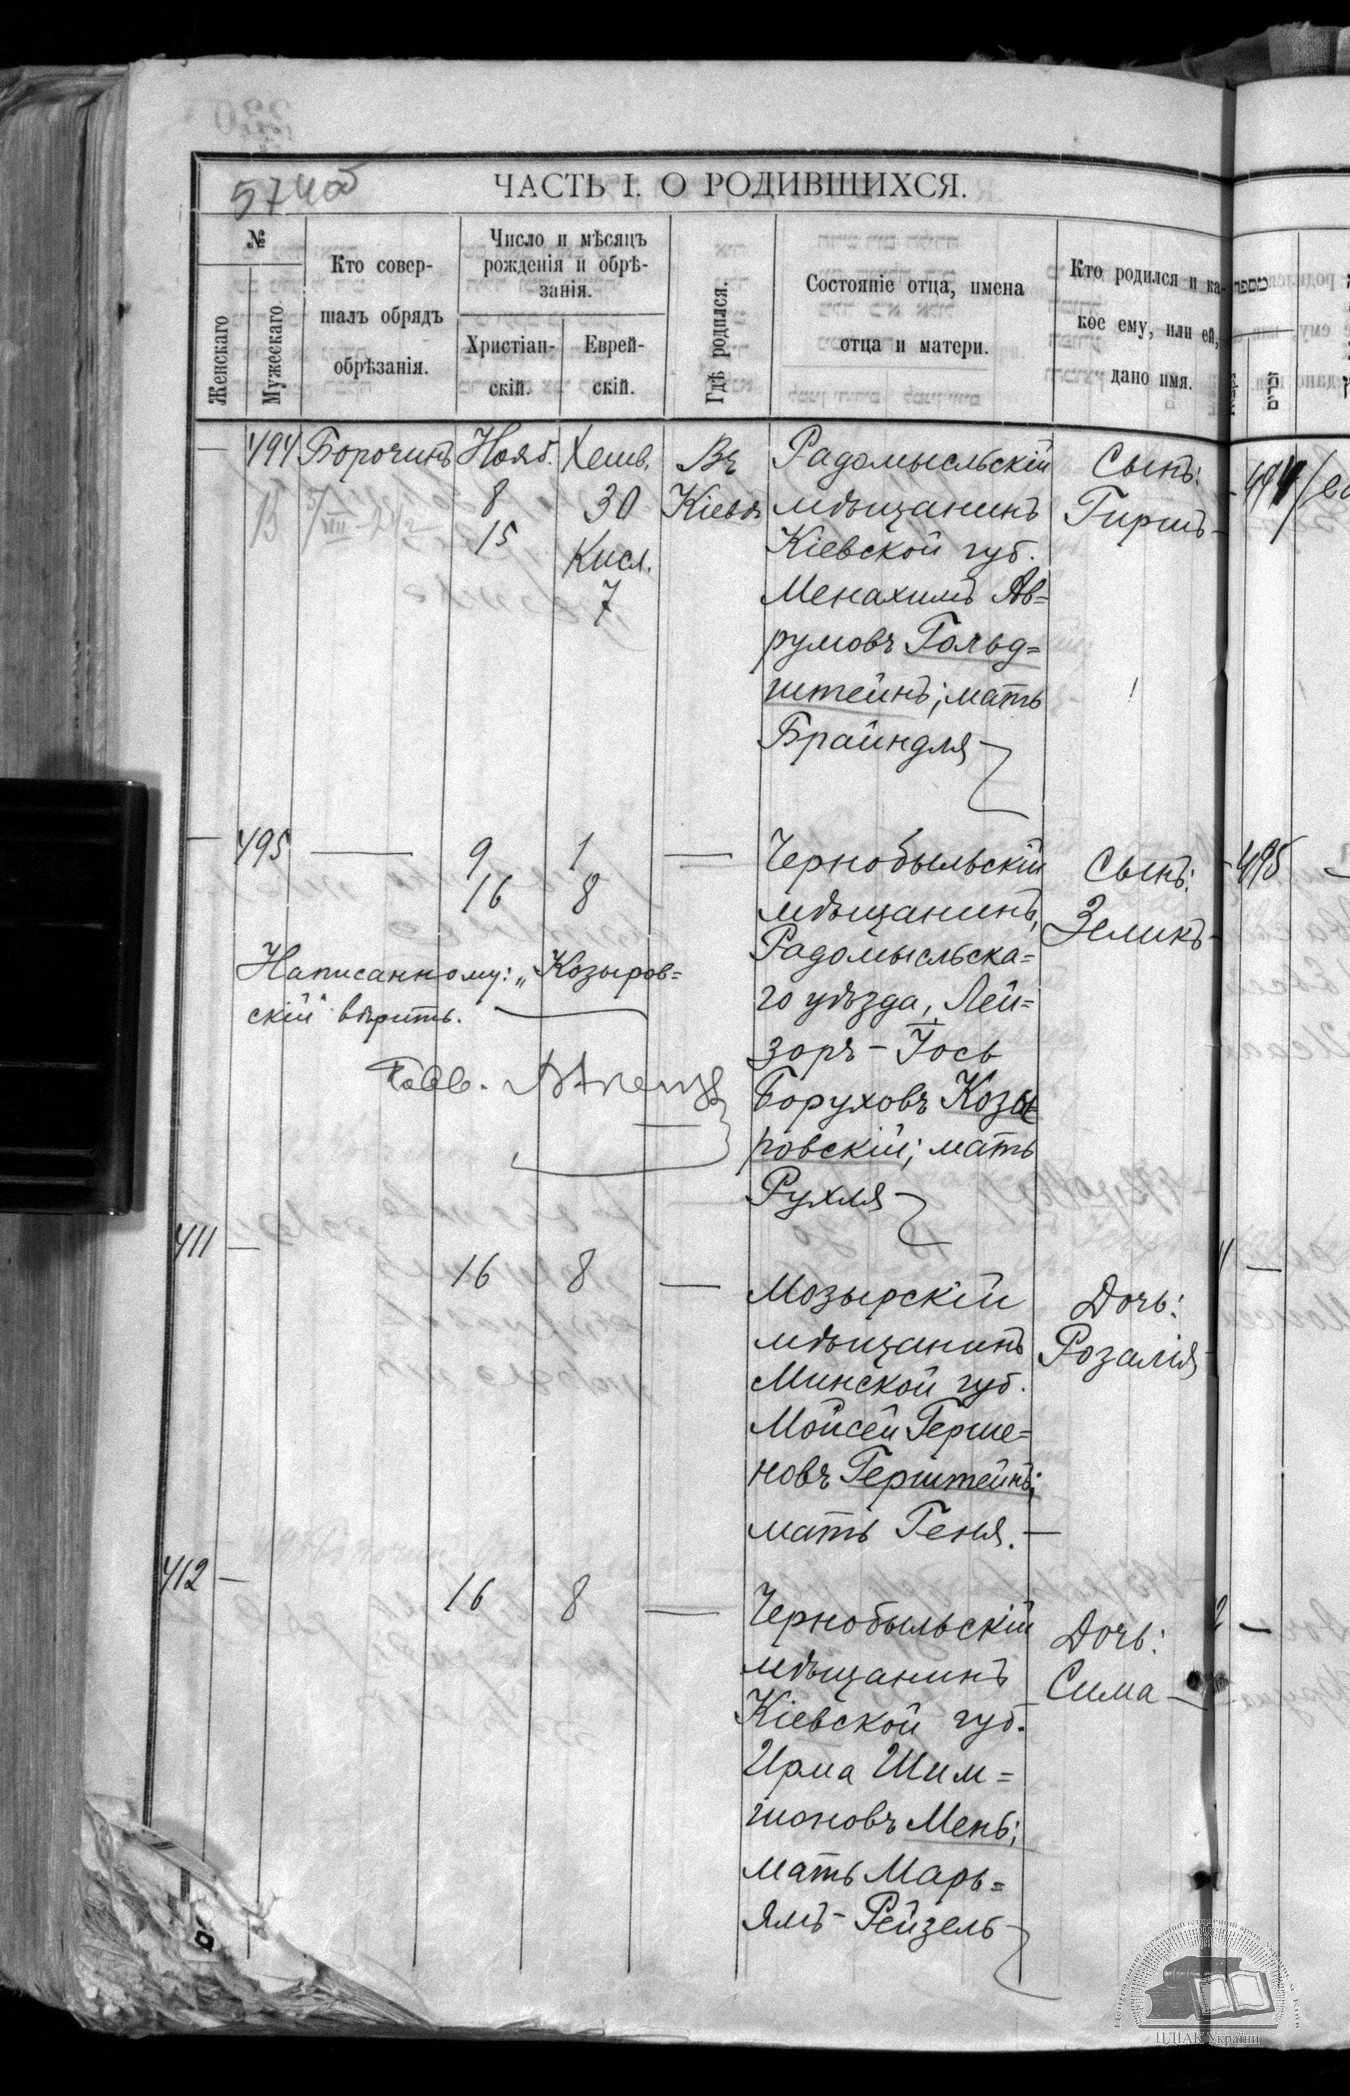 574 об
ЧАСТЬ I. О РОДИВШИХСЯ.
№
Женскаго
Мужескаго
Кто совер-
шалъ обрядъ
обрѣзанія.
Число и мѣсяцъ
рожденія и обрѣ-
занія.
Христіан-
скій.
Еврей-
скій.
Гдѣ родился.
Состояніе отца, имена
отца и матери.
Кто родился и ка-
кое ему, или ей,
дано имя.
— 494 Борочинъ Нояб. 8 15 Хешв. 30 Кисл. 7 Въ Кіевѣ
Радомысльскій
мѣщанинъ
Кіевской губ.
Менахимъ Ав=
румовъ Гольд=
штейнъ; мать
Брайндля
Сынъ:
Гиршъ
— 495 — 9 16 1 8 —
Написанному: „Козыров=
скій" вѣрить.
Чернобыльскій
мѣщанинъ,
Радомысльска=
го уѣзда, Лей=
зоръ-Іось
Боруховъ Козы=
ровскій; мать
Рухля
Сынъ:
Зеликъ
411 — 16 8 —
Мозырскій
мѣщанинъ
Минской губ.
Мойсей Герше=
новъ Герштейнъ;
мать Геня.—
Дочь:
Розалія
412 — 16 8 —
Чернобыльскій
мѣщанинъ
Кіевской губ.
Ирма Шим=
шоновъ Мень;
мать Марь=
ямъ-Рейзель
Дочь:
Сима
494
495
ЦДІАК України